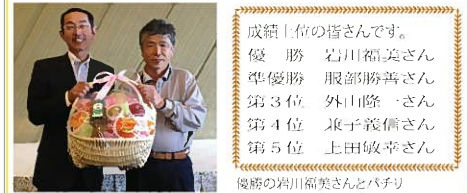 成績上位の皆さんです。
優　勝　岩川福美さん
準優勝　服部勝善さん
第３位　外山隆一さん
第４位　兼子義信さん
第５位　上田敏幸さん
優勝の岩川福美さんとパチリ